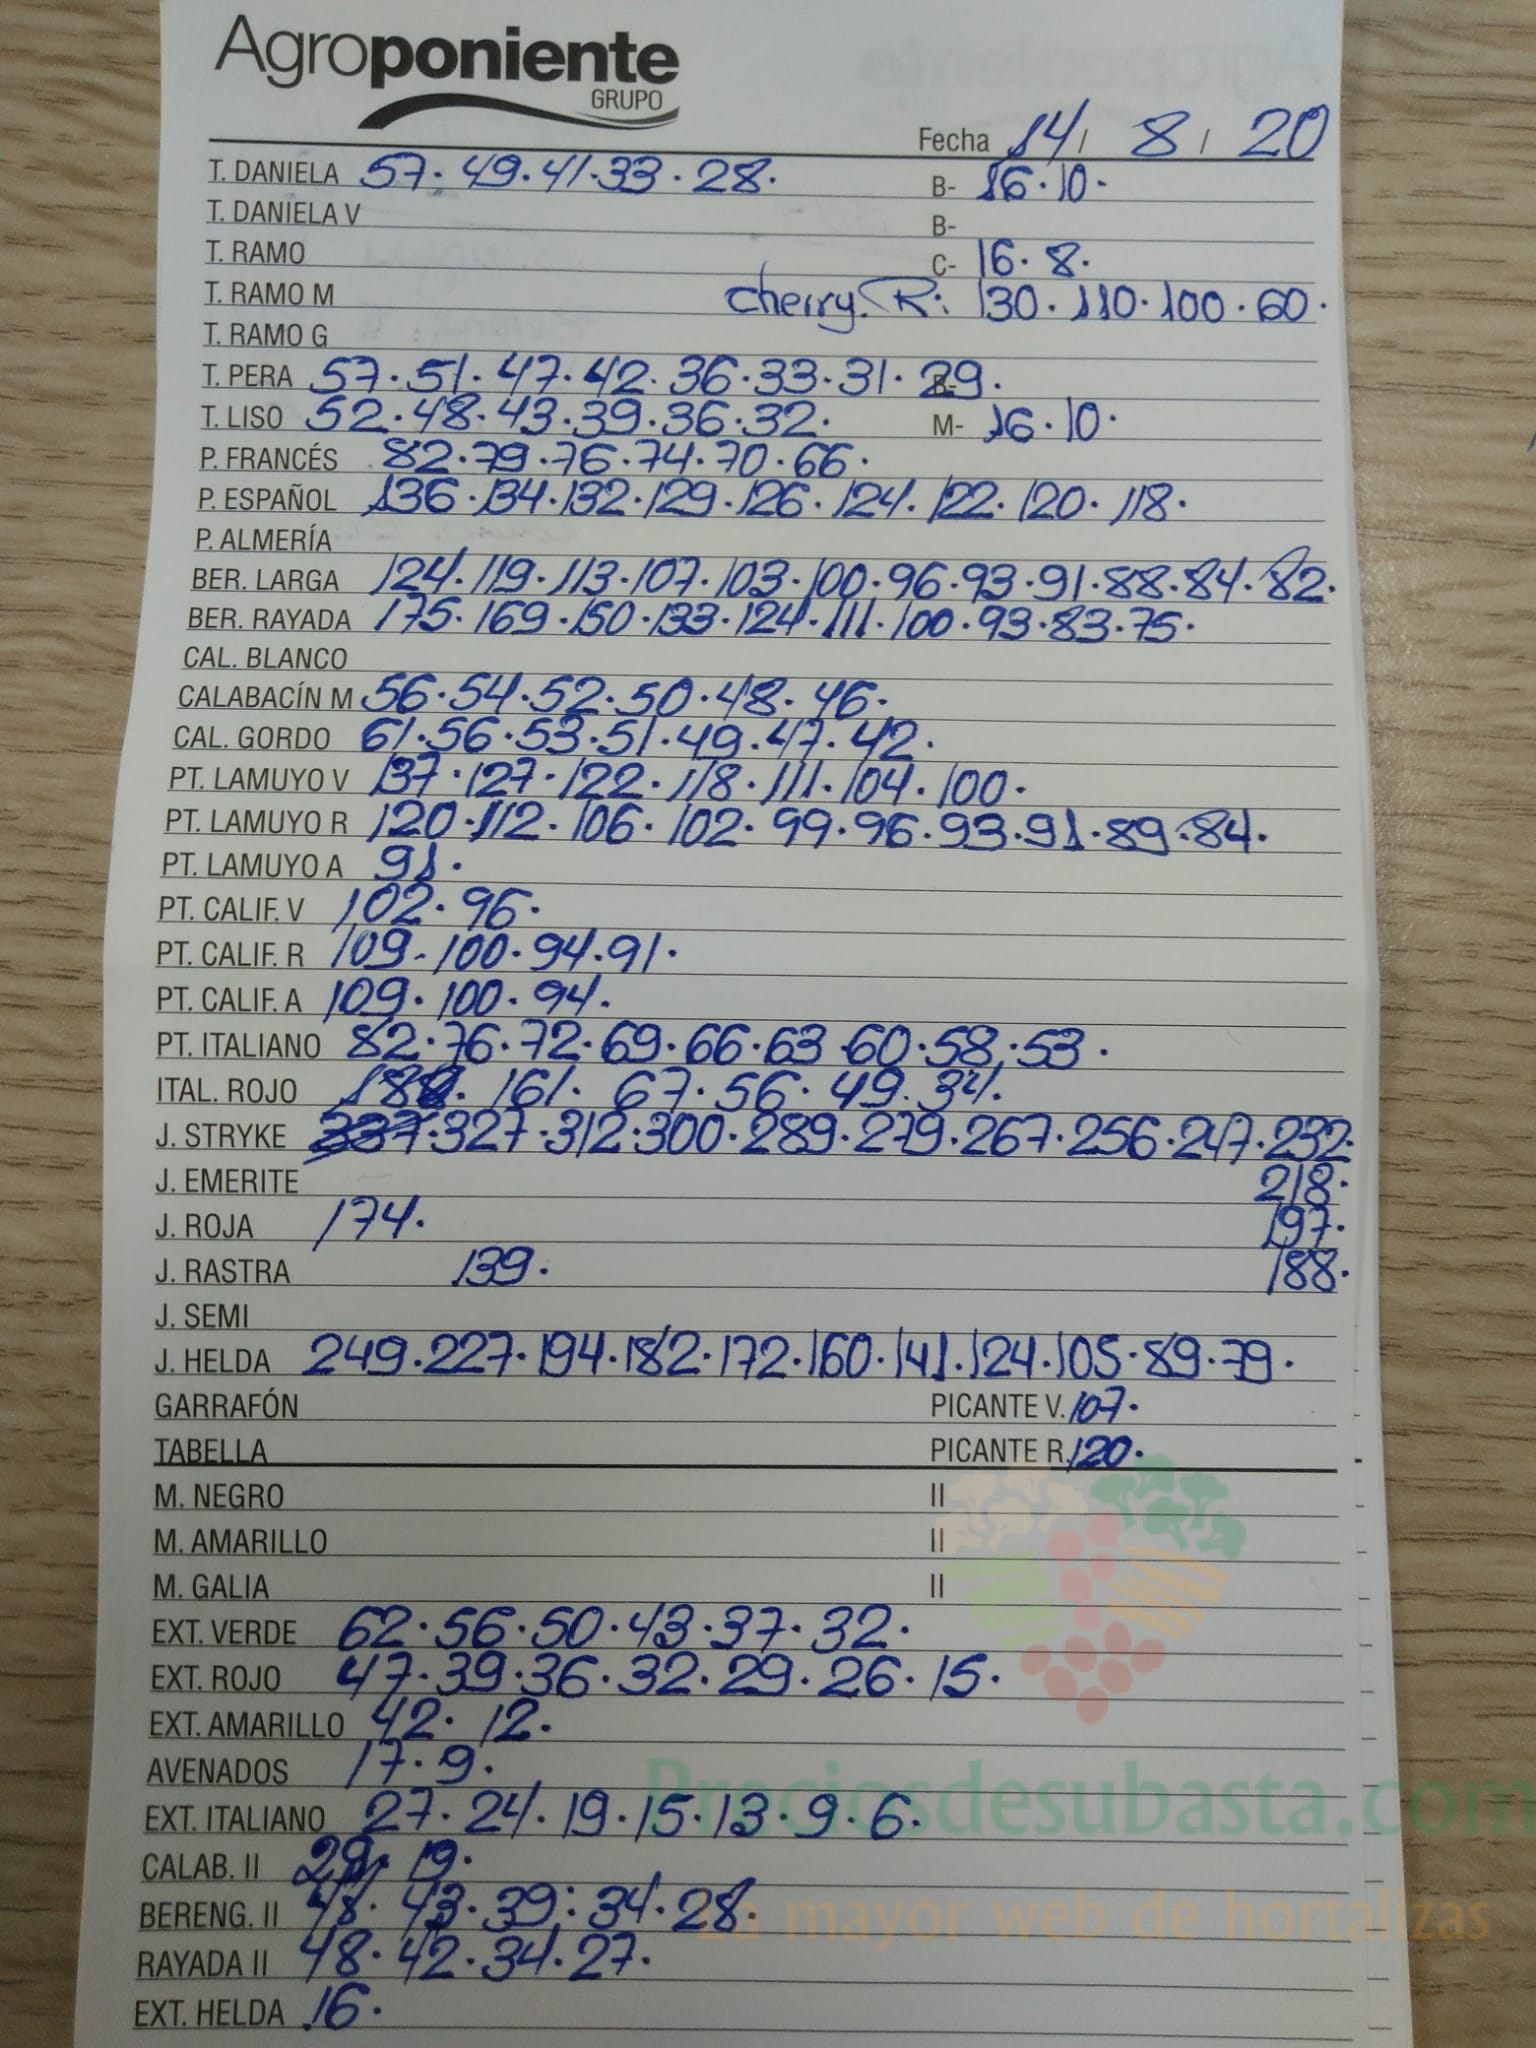 Agroponiente
GRUPO
Fecha 14/ 8 / 20
T. DANIELA 57. 49. 41. 33. 28. B- 16. 10.
T. DANIELA V B-
T. RAMO C- 16. 8.
T. RAMO M Cherry. R: 130. 110. 100. 60.
T. RAMO G
T. PERA 57. 51. 47. 42. 36. 33. 31. 29.
T. LISO 52. 48. 43. 39. 36. 32. M- 16. 10.
P. FRANCÉS 82. 79. 76. 74. 70. 66.
P. ESPAÑOL 136. 134. 132. 129. 126. 124. 122. 120. 118.
P. ALMERÍA
BER. LARGA 124. 119. 113. 107. 103. 100. 96. 93. 91. 88. 84. 82.
BER. RAYADA 175. 169. 150. 133. 124. 111. 100. 93. 83. 75.
CAL. BLANCO
CALABACÍN M 56. 54. 52. 50. 48. 46.
CAL. GORDO 61. 56. 53. 51. 49. 47. 42.
PT. LAMUYO V 137. 127. 122. 118. 111. 104. 100.
PT. LAMUYO R 120. 112. 106. 102. 99. 96. 93. 91. 89. 84.
PT. LAMUYO A 91.
PT. CALIF. V 102. 96.
PT. CALIF. R 109. 100. 94. 91.
PT. CALIF. A 109. 100. 94.
PT. ITALIANO 82. 76. 72. 69. 66. 63 60. 58. 53.
ITAL. ROJO 161. 67. 56. 49. 34.
J. STRYKE 337. 327. 312. 300. 289. 279. 267. 256. 247. 232.
J. EMERITE 218.
J. ROJA 174. 197.
J. RASTRA 139. 188.
J. SEMI
J. HELDA 249. 227. 194. 182. 172. 160. 141. 124. 105. 89. 79.
GARRAFÓN PICANTE V. 107.
TABELLA PICANTE R. 120.
M. NEGRO II
M. AMARILLO II
M. GALIA II
EXT. VERDE 62. 56. 50. 43. 37. 32.
EXT. ROJO 47. 39. 36. 32. 29. 26. 15.
EXT. AMARILLO 42. 12.
AVENADOS 17. 9.
Preciosdesubasta.com
EXT. ITALIANO 27. 24. 19. 15. 13. 9. 6.
CALAB. II 19.
BERENG. II 48. 43. 39: 34. 28.
La mayor web de hortalizas
RAYADA II 48. 42. 34. 27.
EXT. HELDA 16.